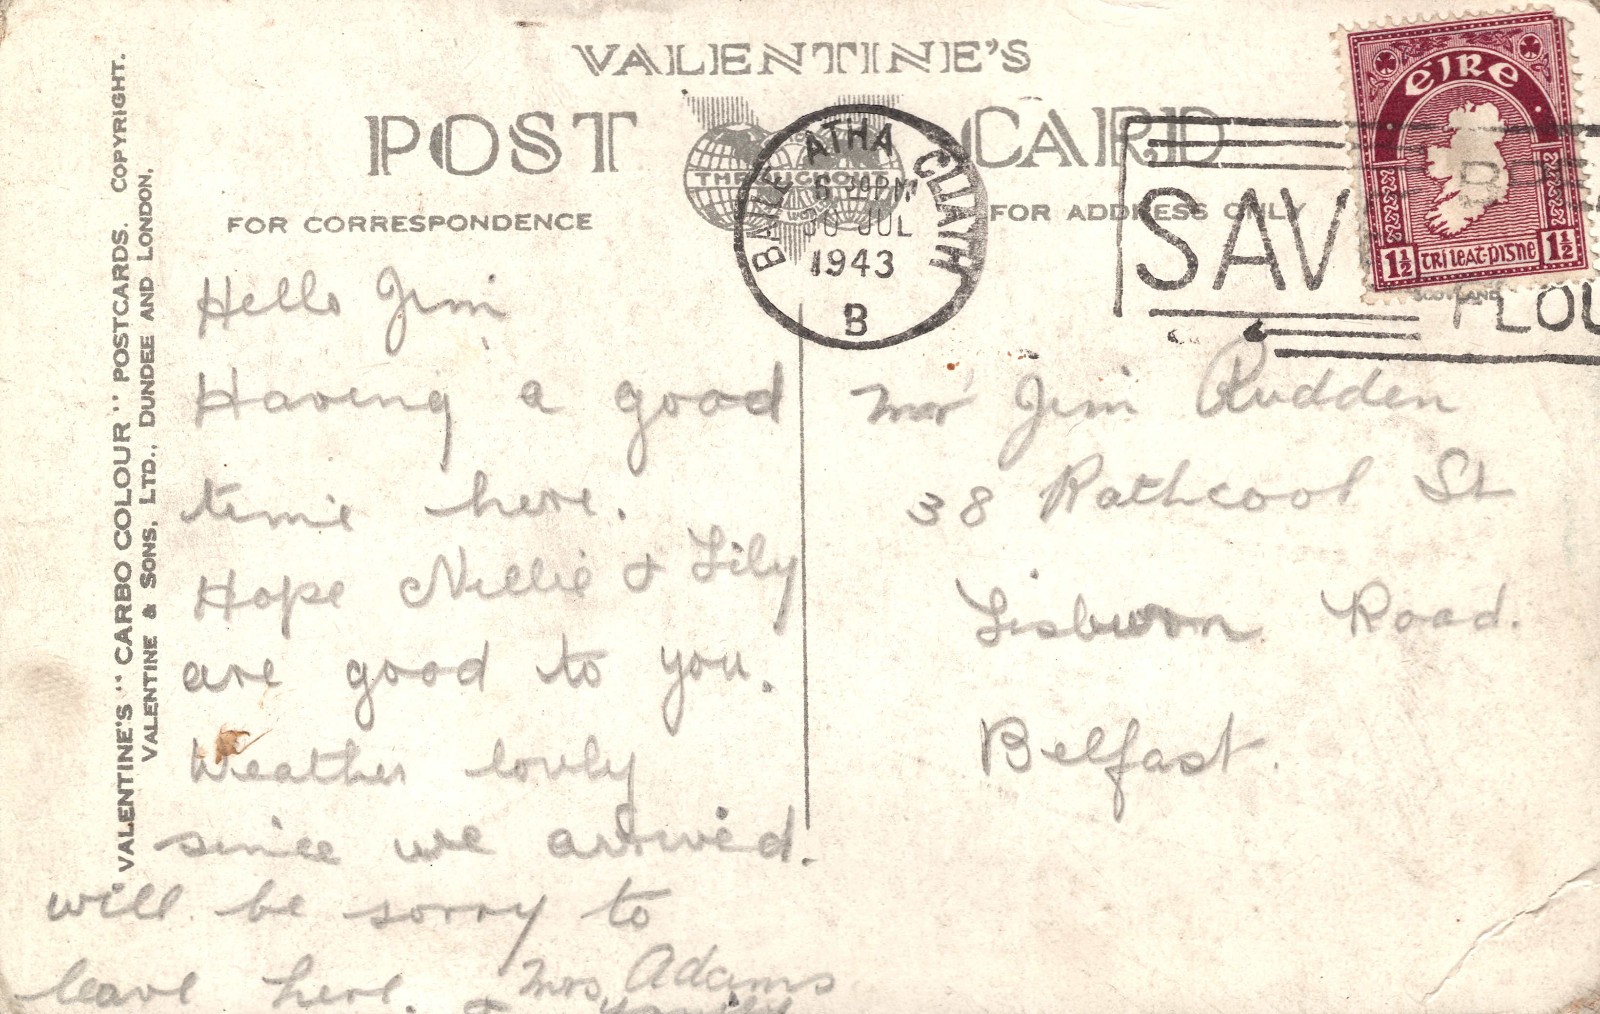 VALENTINE'S
POST CARD
THROUGHOUT
FOR CORRESPONDENCE
FOR ADDRESS ONLY
"VALENTINE'S "CARBO COLOUR" POSTCARDS. COPYRIGHT.
VALENTINE & SONS, LTD., DUNDEE AND LONDON.
BAILE ATHA CLIATH
6 30PM
30 JUL
1943
B
SAV
FLOU
EIRE
1½ TRI LEAT-PISNE 1½
SCOTLAND
Hello Jim
Having a good
time here.
Hope Nellie & Lily
are good to you.
Weather lovly
since we arrived.
will be sorry to
leave here. Mrs Adams
& family
Mr Jim Rudden
38 Rathcool St
Lisburn Road.
Belfast.